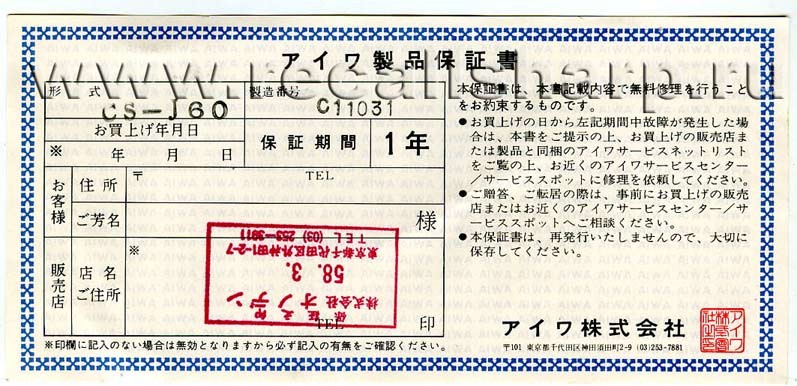 アイワ製品保証書
www.recallsharp.ru
形式 CS-J60
製造番号 C11031
お買上げ年月日
※ 年 月 日
保証期間 1年
お客様
住所 〒 TEL
ご芳名 様
販売店
店名
ご住所
※
保証之印
株式会社 オノデン
58. 3.
東京都千代田区外神田1-2-7
TEL (03) 253-3911
TEL 印
※印欄に記入のない場合は無効となりますから必ず記入の有無をご確認ください。
本保証書は、本書記載内容で無料修理を行うこと
をお約束するものです。
●お買上げの日から左記期間中故障が発生した場
合は、本書をご提示の上、お買上げの販売店ま
たは製品と同梱のアイワサービスネットリスト
をご覧の上、お近くのアイワサービスセンター/
サービススポットに修理を依頼してください。
●ご贈答、ご転居の際は、事前にお買上げの販売
店またはお近くのアイワサービスセンター/サ
ービススポットへご相談ください。
●本保証書は、再発行いたしませんので、大切に
保存してください。
アイワ株式会社
〒101 東京都千代田区神田須田町2-9 (03)253-7881